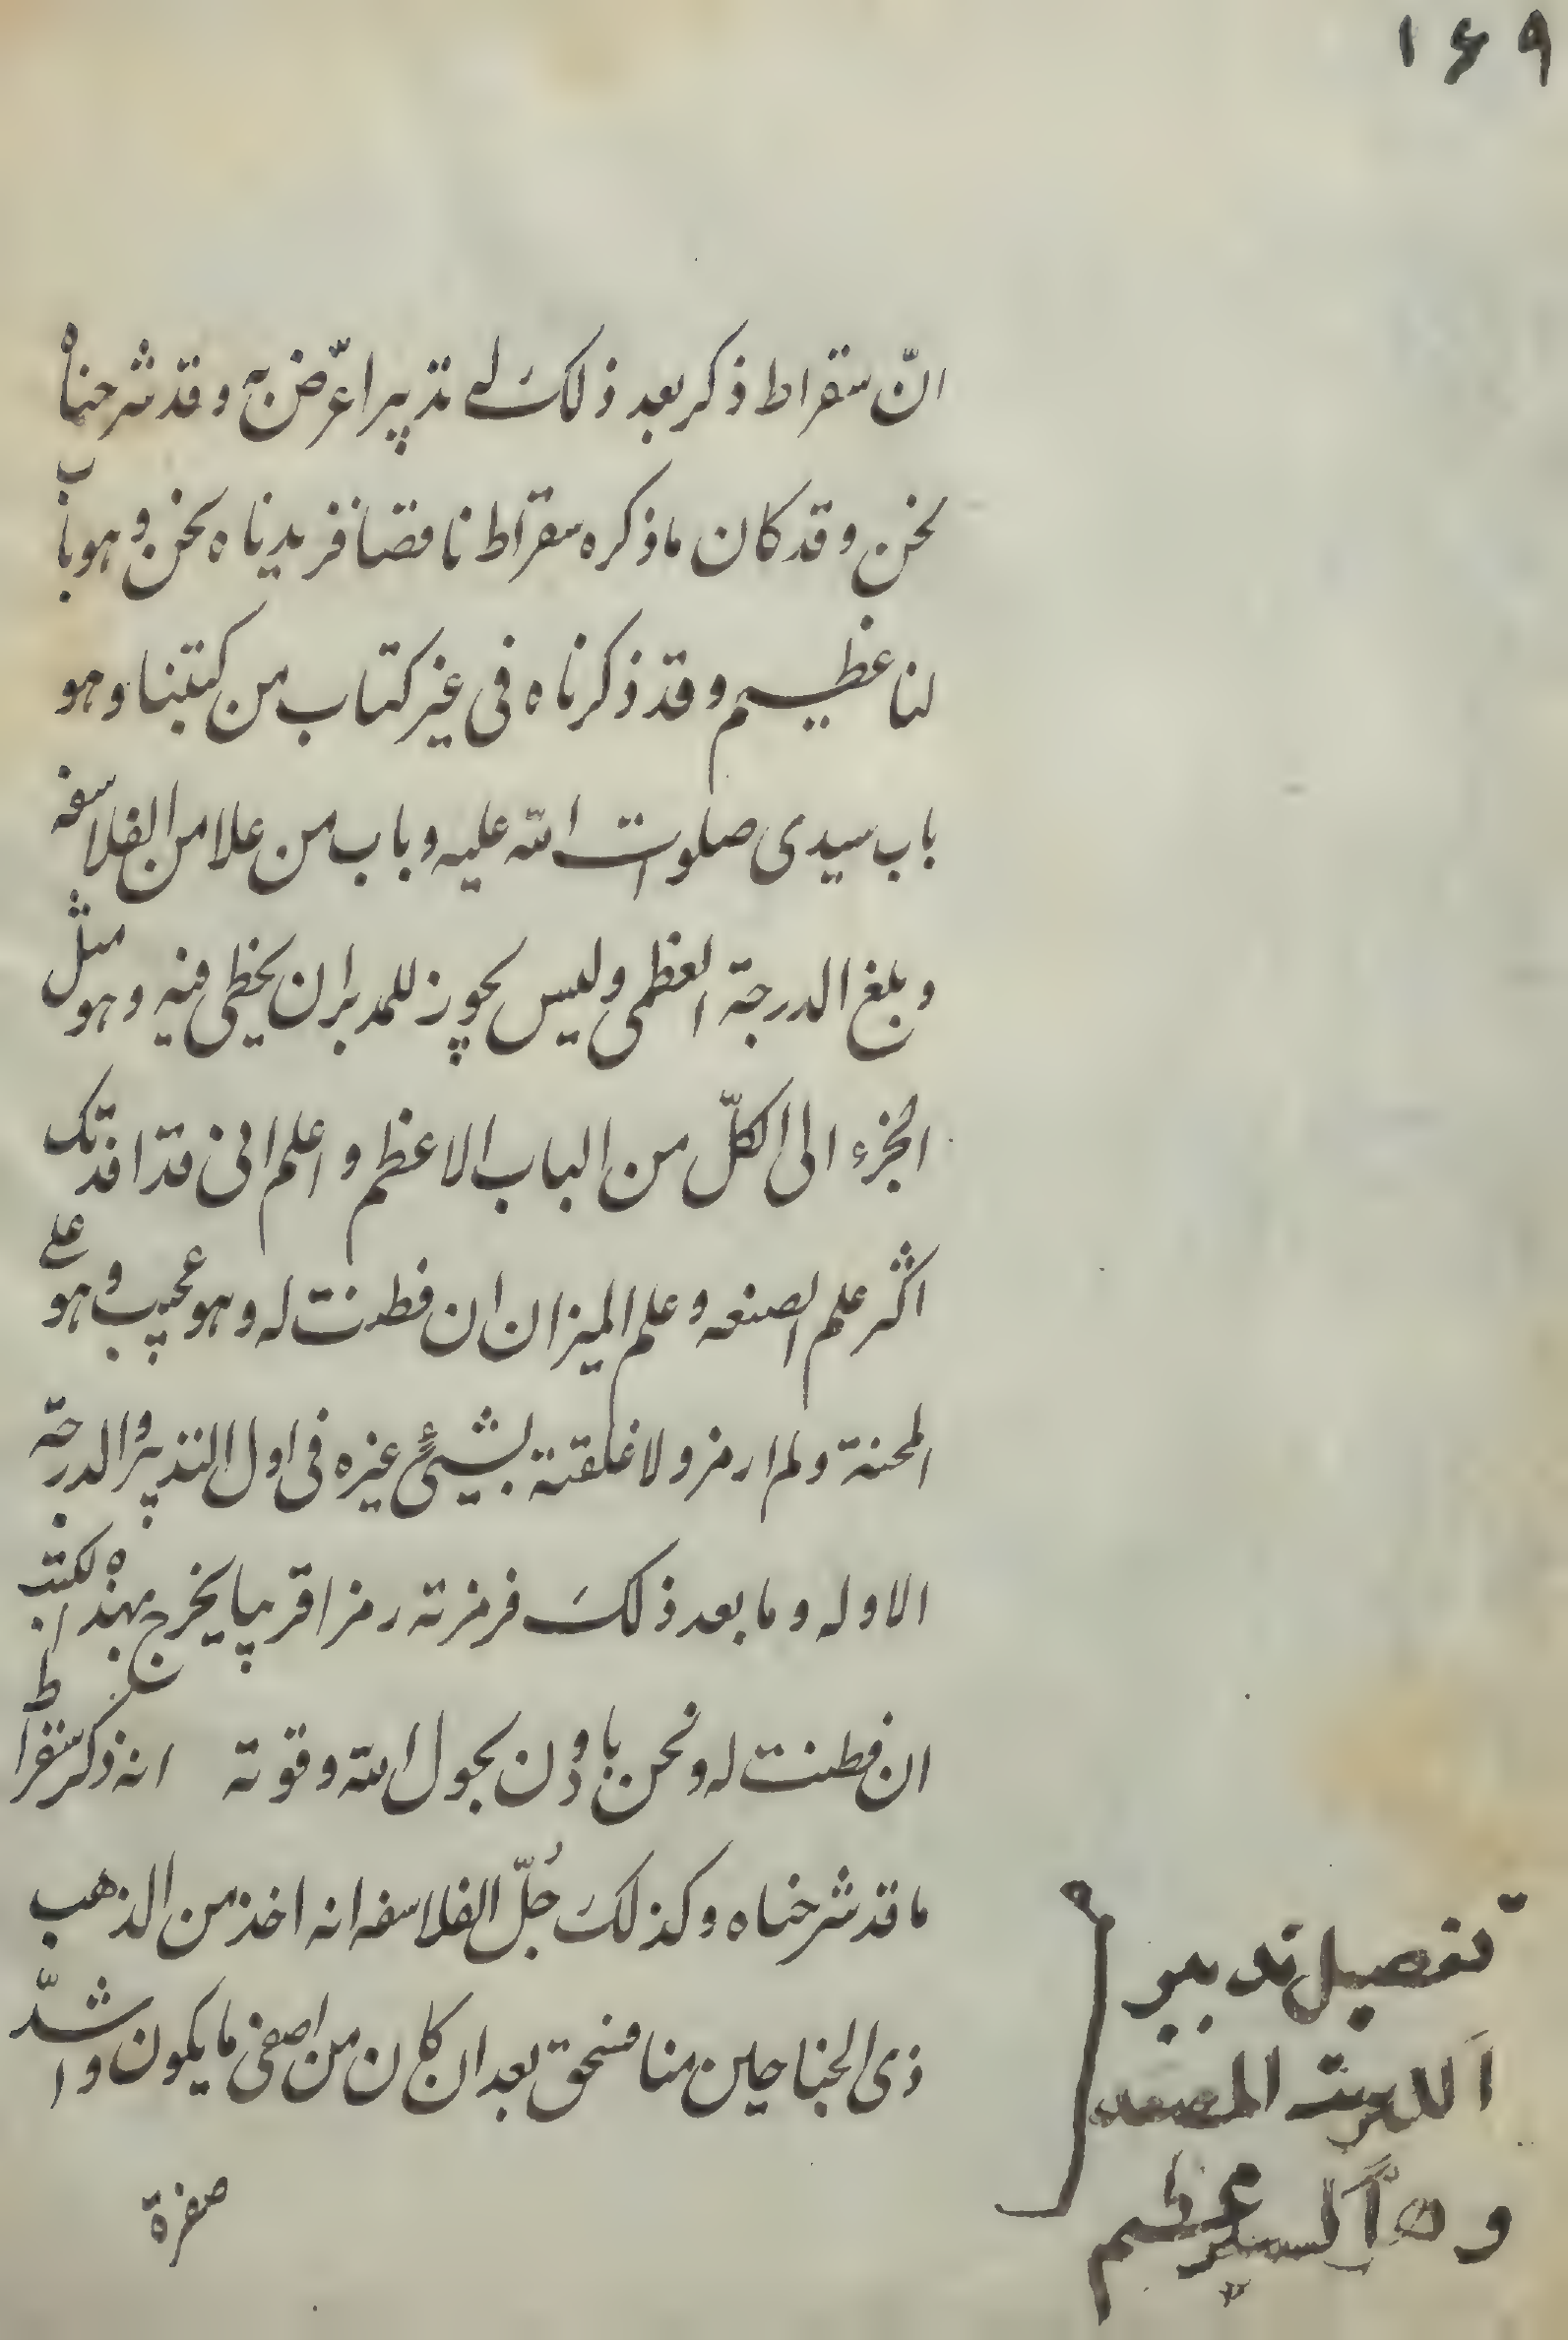 ۱۶۹
انّ سقراط ذكر بعد ذلك لے تدبيرا عرّض به وقد شرحناه
نحن وقد كان ما ذكره سقراط ناقصا فزيدناه نحن وهو باب
لنا عظيم وقد ذكرناه فى غير كتاب من كتبنا وهو
باب سيدى صلوات الله عليه وباب من علا من الفلاسفه
وبلغ الدرجة العظمى وليس يجوز للمدبر ان يخطى فيه وهو مثل
الجزء الى الكلّ من الباب الاعظم واعلم انى قد افدتك
اكثر علم الصنعه وعلم الميزان ان فطنت له وهو عجيب وهو على
المحنة ولم ارمز ولا غلقته بشيئٍ غيره فى اول التدبير والدرجة
الاوله وما بعد ذلك فرمزته رمزا قريبا يخرج بهذه الكتب
ان فطنت له ونحن بادون بحول الله وقوته انه ذكر سقراط
ما قد شرحناه وكذلك جُلّ الفلاسفه انه اخذ من الذهب
ذى الجناحين منا فسحق بعد ان كان من اصفى ما يكون واشدّ
صفرة
تفصيل تدبير
المصعد
عظيم